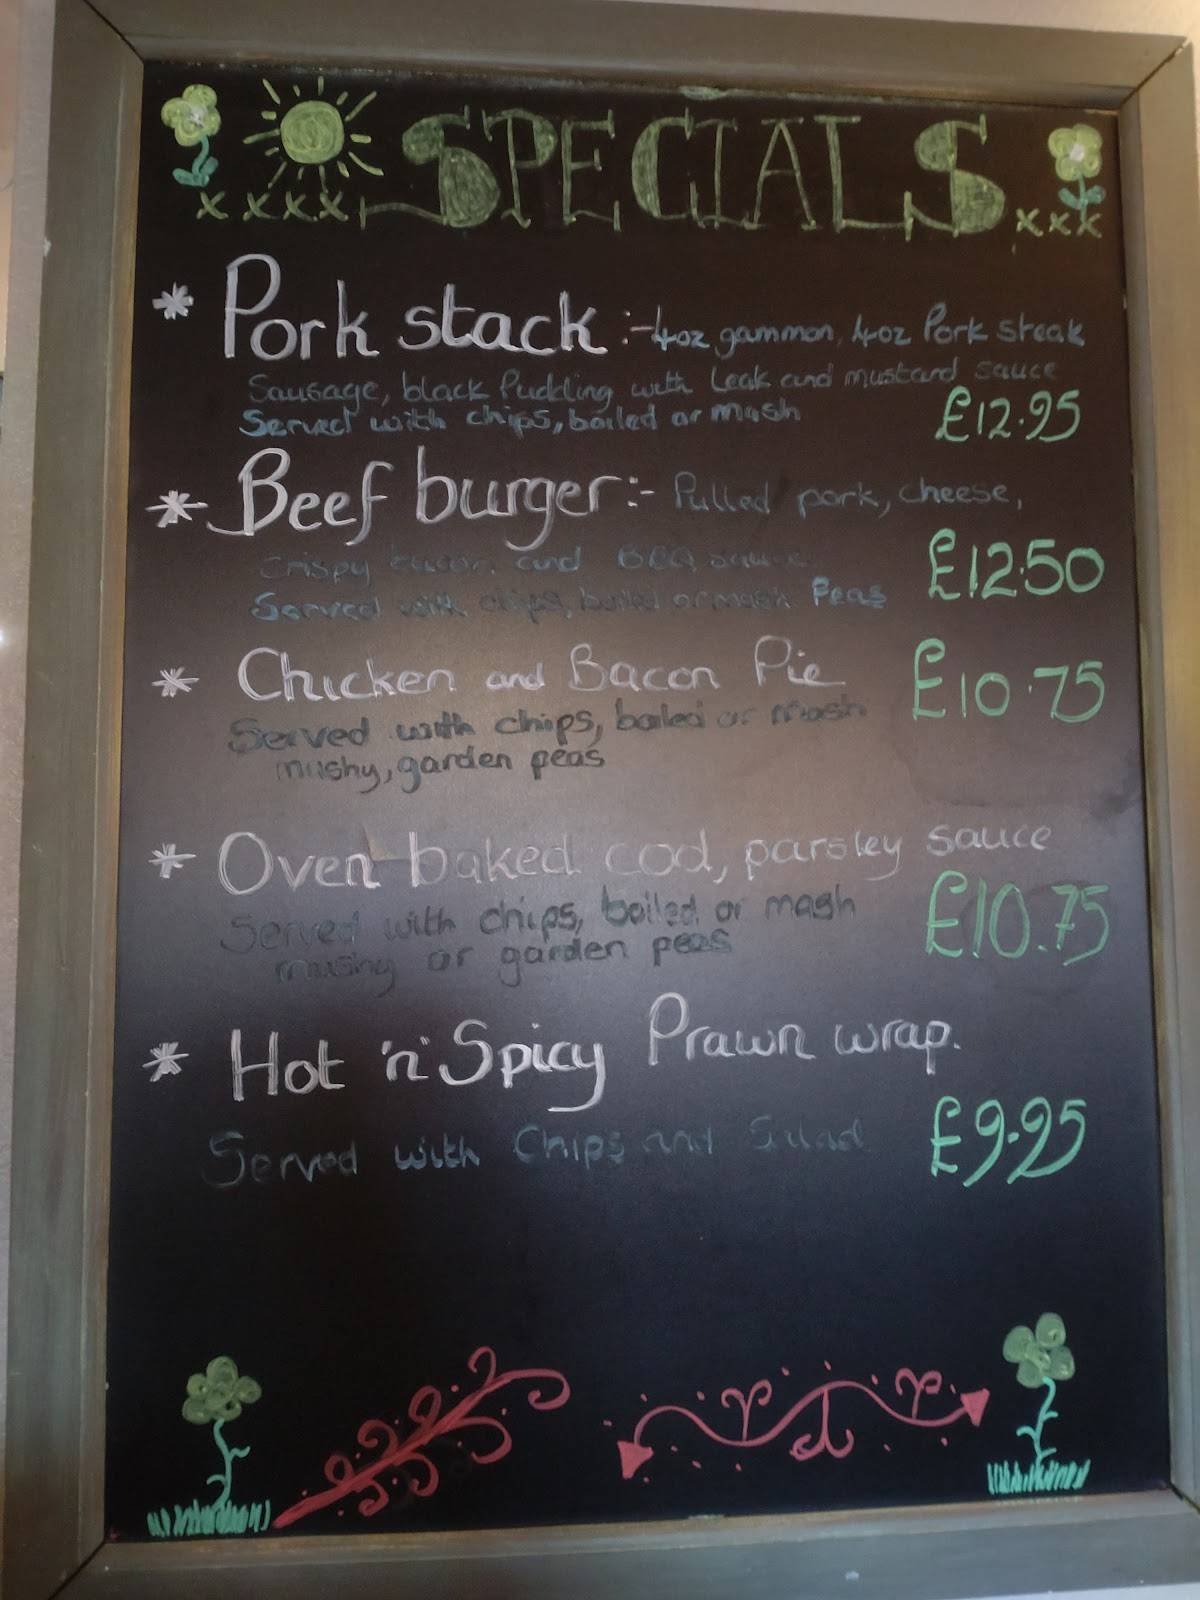 xxxx SPECIALS xxx
* Pork stack :- 4oz gammon, 4oz Pork steak
Sausage, black Pudding with Leak and mustard sauce
Served with chips, boiled or mash £12.95
* Beef burger:- Pulled pork, cheese,
crispy bacon and BBQ sauce £12.50
Served with chips, boiled or mash Peas
* Chicken and Bacon Pie £10.75
Served with chips, boiled or mash
mushy, garden peas
* Oven baked cod, parsley sauce
Served with chips, boiled or mash £10.75
mushy or garden peas
* Hot 'n' Spicy Prawn wrap.
Served with Chips and Salad £9.95